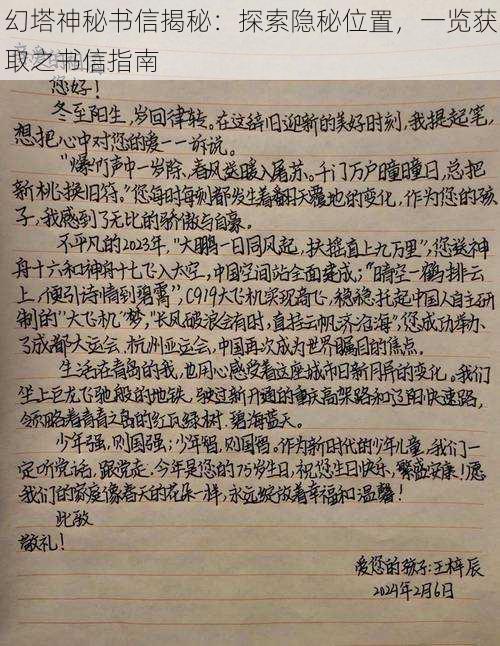 幻塔神秘书信揭秘：探索隐秘位置，一览获
取之书信指南
您好！
冬至阳生，岁回律转。在这辞旧迎新的美好时刻，我提起笔，
想把心中对您的爱一一诉说。
“爆竹声中一岁除，春风送暖入屠苏。千门万户曈曈日，总把
新桃换旧符。”您每时每刻都发生着翻天覆地的变化，作为您的孩
子，我感到了无比的骄傲与自豪。
不平凡的2023年，“大鹏一日同风起，扶摇直上九万里”，您送神
舟十六和神舟十七飞入太空，中国空间站全面建成；“晴空一鹤排云
上，便引诗情到碧霄”，C919大飞机实现商飞，稳稳托起中国人自主研
制的“大飞机”梦，“长风破浪会有时，直挂云帆济沧海”，您成功举办
了成都大运会、杭州亚运会，中国再次成为世界瞩目的焦点。
生活在青岛的我，也用心感受着这座城市日新月异的变化。我们
坐上巨龙飞驰般的地铁，驶过新开通的重庆高架路和辽阳快速路，
领略着青青之岛的红瓦绿树、碧海蓝天。
少年强，则国强；少年智，则国智。作为新时代的少年儿童，我们一
定听党话，跟党走。今年是您的75岁生日，祝您生日快乐，繁盛安康！愿
我们的家庭像春天的花朵一样，永远绽放着幸福和温馨！
此致
敬礼！
爱您的孩子：王梓辰
2024年2月6日